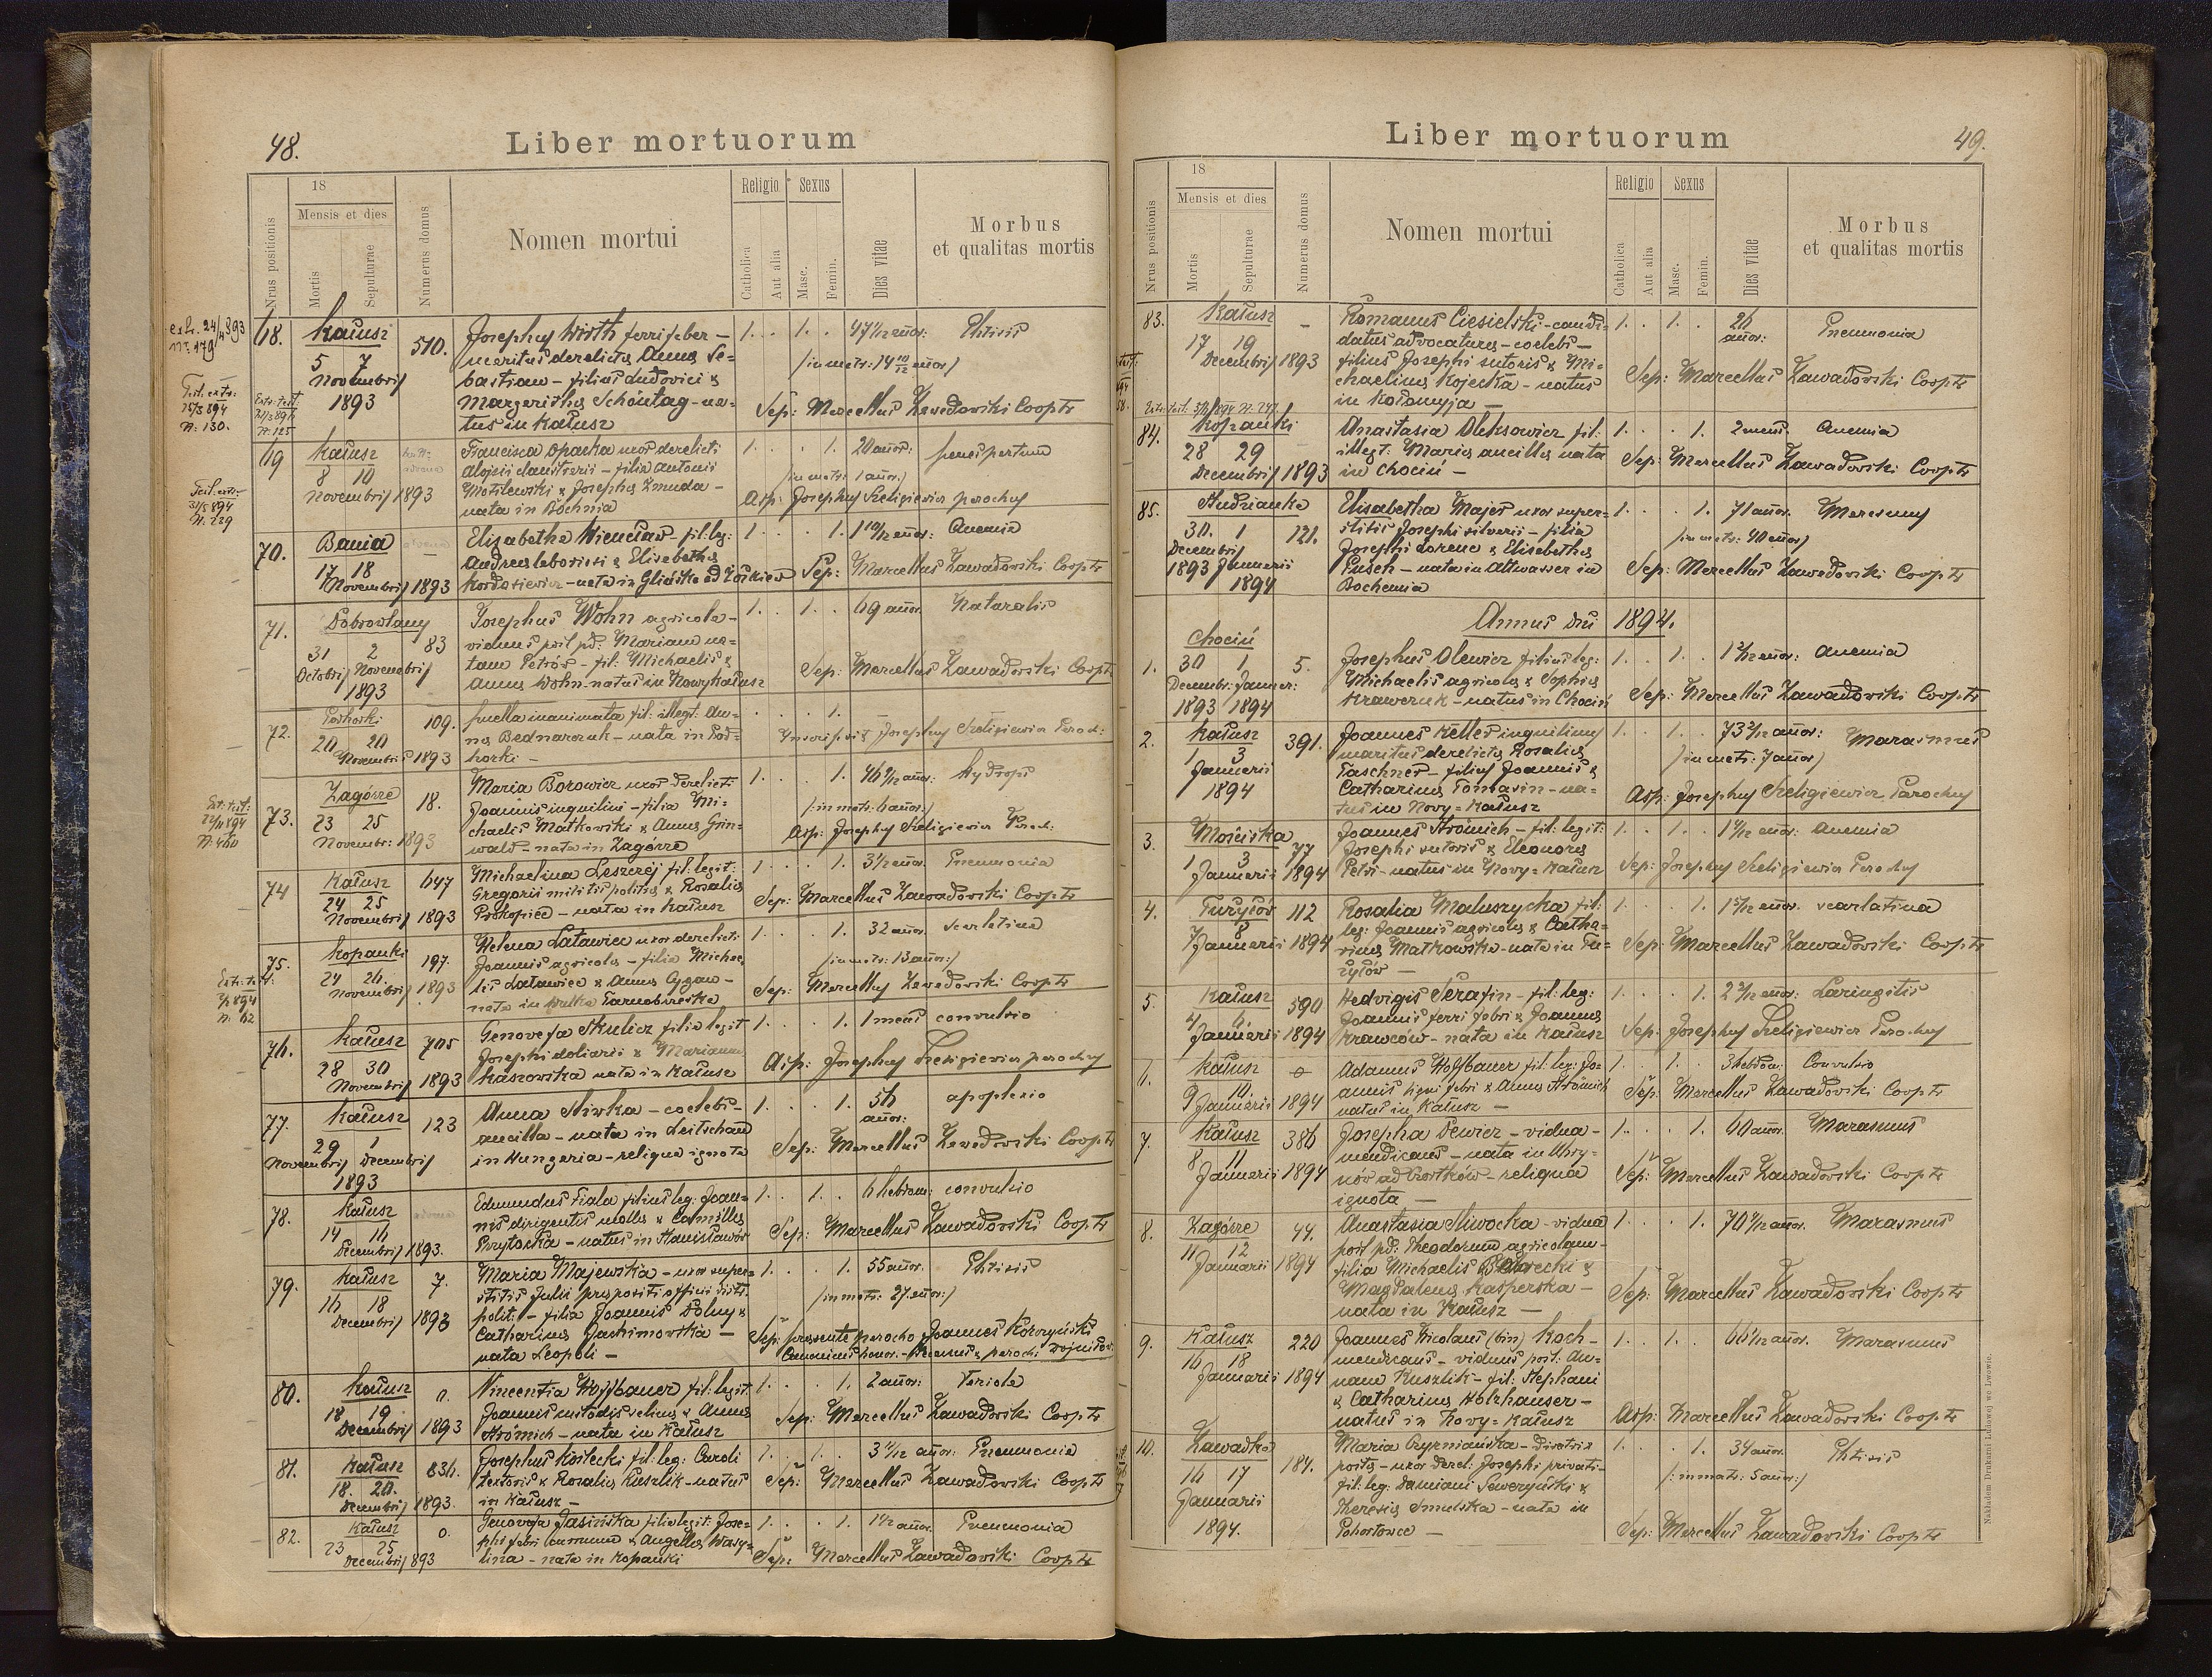 48.
Liber mortuorum
Nrus positionis
18
Mensis et dies
Mortis
Sepulturae
Numerus domus
Nomen mortui
Religio
Catholica
Aut alia
Sexus
Masc.
Femin.
Dies vitae
Morbus
et qualitas mortis
68.
Kałusz
5 7
Novembris
1893
510.
Josephus Wirth ferrifaber –
maritus derelictae Annae Se=
bastian – filius Ludovici &
Margarithae Schöntag – na=
tus in Kałusz
1. . 1. . 47 1/12 añor: Phtisis
/in matr: 14 10/12 añor/
Sep: Marcellus Zawadowski Cooptr
69
Kałusz
8 10
Novembris 1893
Francisca Oparka uxor derelicti
Aloysii – filia Antonii
Motilewski & Josephae Zmuda –
nata in Bochnia
1. . . 1. 20 añor: partum
/in matr: 1 añor:/
Asp: Josephus Szeligiewicz parochus
70.
Bania
17 18
Novembris 1893
–
Elisabetha Wiencław fil: leg:
Andreae laborissi & Elisabethae
Kordasiewicz – nata in Glińsko ad Żółkiew
1. . . 1. 1 10/12 añor: Anemia
Sep: Marcellus Zawadowski Cooptr
71.
Dobrowlany
31 2
Octobris Novembris
1893
83
Josephus Wohn agricola –
viduus post pd: Mariam na=
tam Petrów – fil: Michaelis &
Annae Wohn – natus in Nowykałusz
1. . 1. . 69 añor. Naturalis
Sep: Marcellus Zawadowski Cooptr
72.
Podhorki
20 20
Novembris 1893
109.
puella inanimata fil: illegt: An=
nae Bednarczuk – nata in Pod=
horki –
1.
Inscripsit Josephus Szeligiewicz Paroch:
73.
Zagórze
23 25
Novembr: 1893
18.
Maria Borowicz uxor derelicti
Joannis inquilini – filia Mi=
chaelis Matkowski & Annae Grin=
wald – nata in Zagórze
1. . . 1. 46 9/12 añor: hydrops
/in matr: 6 añor:/
Asp: Josephus Szeligiewicz Paroch:
74
Kałusz
24 25
Novembris 1893
647
Michaelina Leszczéj fil: legit:
Gregorii militis politiae & Rosaliae
Prokopiec – nata in Kałusz
1. . . 1. 3 1/2 añor. Pneumonia
Sep: Marcellus Zawadowski Cooptr
75.
Kopanki
24 26
Novembris 1893
197.
Helena Latawiec uxor derelicti
Joannis agricolae – filia Michae
lis Latawiec & Annae Cygan –
nata in Wulka Tarnobrzeska
1. . . 1. 32 añor. Scarlatina
/in matr: 13 añor:/
Sep: Marcellus Zawadowski Cooptr
76.
Kałusz
28 30
Novembris 1893
705
Genovefa Skulicz filia legit
Josephi doliarii & Mariannae
Kaszowska nata in Kałusz
1. . . 1. 1 mens convulsio
Asp: Josephus Szeligiewicz parochus
77.
Kałusz
29 1
Novembris Decembris
1893
123
Anna Sliwka – coelebs –
ancilla – nata in Leitschau
in Hungaria – reliqua ignota
1. . . 1. 56
añor: apoplexio
Sep: Marcellus Zawadowski Cooptr
78.
Kałusz
14 16
Decembris 1893.
Edmundus Fiala filius leg: Joan=
nis dirigentis molae & Camillae
Przytocka – natus in Stanisławów
1. . 1. . 6 hebdom: convulsio
Sep: Marcellus Zawadowski Cooptr
79.
Kałusz
16 18
Decembris 1893
7.
Maria Majewska – uxor super=
stitis Julii praepositi officii distr:
polit: – filia Joannis Dolny &
Catharinae Jachimowska –
nata Leopoli –
1. . . 1. 55 añor. Phtisis
/in matr: 27. añor:/
Sep: praesente parocho Joannes Korczyński
Canonicus honor. – Decanus & parochi Wojniłow.
80.
Kałusz
18 19
Decembris 1893
0.
Vincentia Hoffbauer fil: legit:
Joannis custodis salinae & Annae
Strömich – nata in Kałusz
1. . . 1. 2 añor: Variola
Sep: Marcellus Zawadowski Cooptr
81.
Kałusz
18. 20.
Decembris 1893.
836.
Josephus Kostecki fil: leg: Caroli
textoris & Rosaliae Kuszlik – natus
in Kałusz –
1. . 1. . 3 4/12 añor: Pneumonia
Sep: Marcellus Zawadowski Cooptr
82.
Kałusz
23 25
Decembris 893
0.
Genovefa Jasińska filia legit: Jose=
phi fabri & Angellae Wasy=
lina – nata in Kopanki
1. . . 1. 1 1/2 añor. Pneumonia
Sep: Marcellus Zawadowski Cooptr
Liber mortuorum
49.
Nrus positionis
18
Mensis et dies
Mortis
Sepulturae
Numerus domus
Nomen mortui
Religio
Catholica
Aut alia
Sexus
Masc.
Femin.
Dies vitae
Morbus
et qualitas mortis
83.
Kałusz
17 19
Decembris 1893
–
Romanus Ciesielski – candi=
datus advocaturae – coelebs –
filius Josephi sutoris & Mi=
chaelinae Kojecka – natus
in Kołomyja –
1. . 1. . 26
añor: Pneumonia
Sep: Marcellus Zawadowski Cooptr
84.
Kopanki
28 29
Decembris 1893
Anastasia Oleksowicz fil.
illegt: Mariae ancillae nata
in Chociń –
1. . . 1. 2 mens. Anemia
Sep: Marcellus Zawadowski Cooptr
85.
Studzianka
30. 1
Decembris
1893 Januarii
1894
121.
Elisabetha Majer uxor super=
stitis Josephi silvarii – filia
Josephi Lorenc & Elisabethae
Pusch – nata in Altwasser in
Bochemia
1. . . 1. 71 añor. Marasmus
/in matr: 40 añor/
Sep: Marcellus Zawadowski Cooptr
Annus Dni 1894.
1.
Chociń
30 1
Decembr: Januar:
1893 1894
5.
Josephus Olewicz filius leg:
Michaelis agricolae & Sophiae
Krawczuk – natus in Chociń
Anemia
Sep: Marcellus Zawadowski Cooptr
2.
Kałusz
1 3
Januarii
1894
391.
Joannes Keller inquilinus
maritus derelictae Rosaliae
Taschner – filius Joannis &
Catharinae Tomasin – na=
tus in Nowy=Kałusz
1. . 1. . 73 2/12 añor: Marasmus
/in matr: 7 añor/
Asp: Josephus Szeligiewicz Parochus
3.
Mościska
1 3
Januarii 1894
77
Joannes Strömich – fil: legit:
Josephi sutoris & Eleonorae
Petri – natus in Nowy=Kałusz
Anemia
Sep: Josephus Szeligiewicz Parochus
4.
Turyłów
7 8
Januarii 1894
112
Rosalia Maluszycka fil:
leg: Joannis agricolae & Catha=
rinae Matkowska – nata in Tu=
ryłów –
scarlatina
Sep: Marcellus Zawadowski Cooptr
5.
Kałusz
4 6
Januarii 1894
590
Hedvigis Serafin – fil: leg:
Joannis ferri fabri & Joannae
Krawców – nata in Kałusz
Laringitis
Sep: Josephus Szeligiewicz Parochus
6.
Kałusz
9 10
Januarii 1894
0
Adamus Hoffbauer fil: leg: Jo=
annis ligni fabri & Annae Strömich
natus in Kałusz –
1. . 1. . 3 hebdom: Convulsio
Sep: Marcellus Zawadowski Cooptr
7.
Kałusz
8 11
Januarii 1894
386
Josepha Dewicz – vidua –
mendicans – nata in Uhry=
nów ad Czortków – reliqua
ignota –
1. . . 1. 60 añor. Marasmus
Sep: Marcellus Zawadowski Cooptr
8.
Zagórze
11 12
Januarii 1894
44.
Anastasia Sliwocka – vidua
post pd: Theodorum agricolam –
filia Michaelis &
Magdalenae Kasperska –
nata in Kałusz –
1. . . 1. 70 9/12 añor. Marasmus
Sep: Marcellus Zawadowski Cooptr
9.
Kałusz
16 18
Januarii 1894
220
Joannes Nicolaus (bin) Koch –
mendicans – viduus post: An=
nam Kuszlik – fil: Stephani
& Catharinae Holzhauser –
natus in Nowy=Kałusz
Marasmus
Asp: Marcellus Zawadowski Cooptr
10.
Zawadka
16 17
Januarii
1894.
184.
Maria Cyrniańska – Directrix
postae – uxor derel: Josephi privati –
fil: leg: Damiani Seweryński &
Theresiae Smulska – nata in
Pohortowce –
1. . . 1. 34 añor. Phtisis
/:in matr: 5 añor:/
Sep: Marcellus Zawadowski Cooptr
Nakładem Drukarni Ludowej we Lwowie.